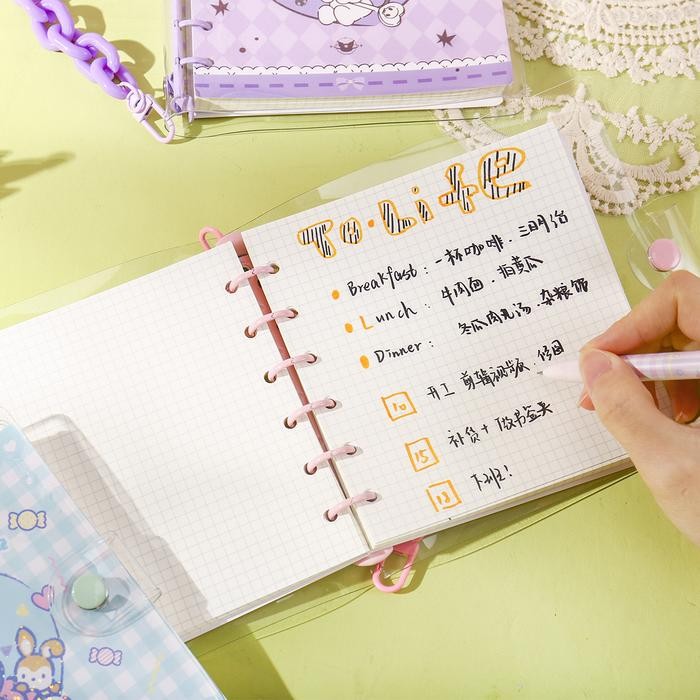 To·Life
Breakfast: 一杯咖啡. 三明治
Lunch: 牛肉面. 拍黄瓜
Dinner: 冬瓜肉丸汤. 杂粮饭
10 开工 剪辑视频. 修图
15 补货+做书签夹
18 下班!